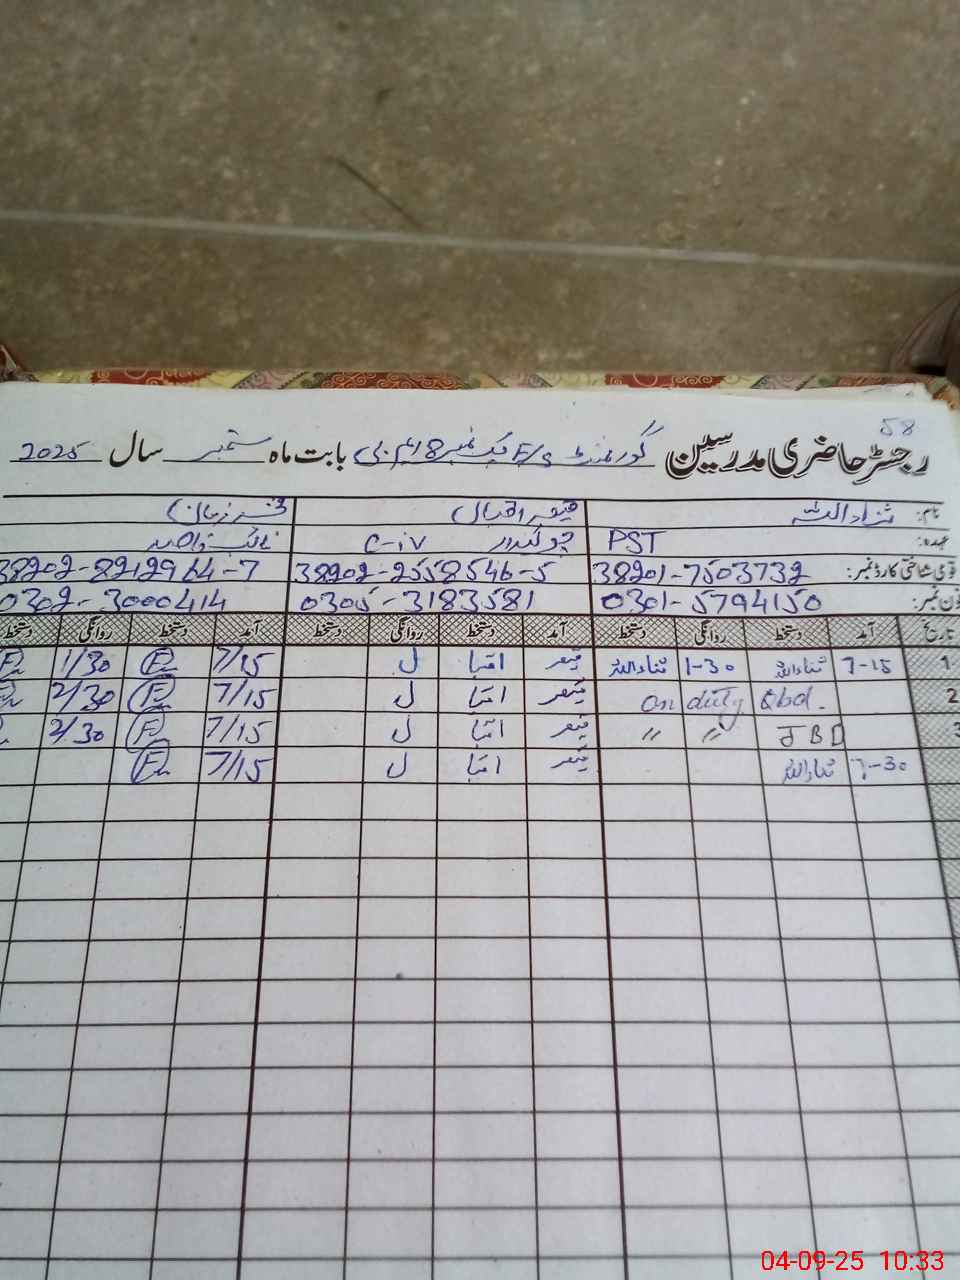 58
رجسٹر حاضری مدرسین گورنمنٹ E/S چک نمبر 8 ایم بی بابت ماه ستمبر سال 2025
نام: ثناء اللہ قیصر اقبال
عہدہ: PST چوکیدار C-iv نائب قاصد
قومی شناختی کارڈ نمبر: 38201-7503732 38202-2558546-5 38202-8212964-7
فون نمبر: 0301-5794150 0305-3183581 0302-3000414
تاریخ آمد دستخط روانگی دستخط آمد دستخط روانگی دستخط آمد دستخط روانگی دستخط
1 7-15 ثناء اللہ 1-30 ثناء اللہ قیصر اقبا ل 7/15 1/30
2 Qbd. on duty قیصر اقبا ل 7/15 2/30
3 JBD " " قیصر اقبا ل 7/15 2/30
7-30 ثناء اللہ قیصر اقبا ل 7/15
04-09-25 10:33